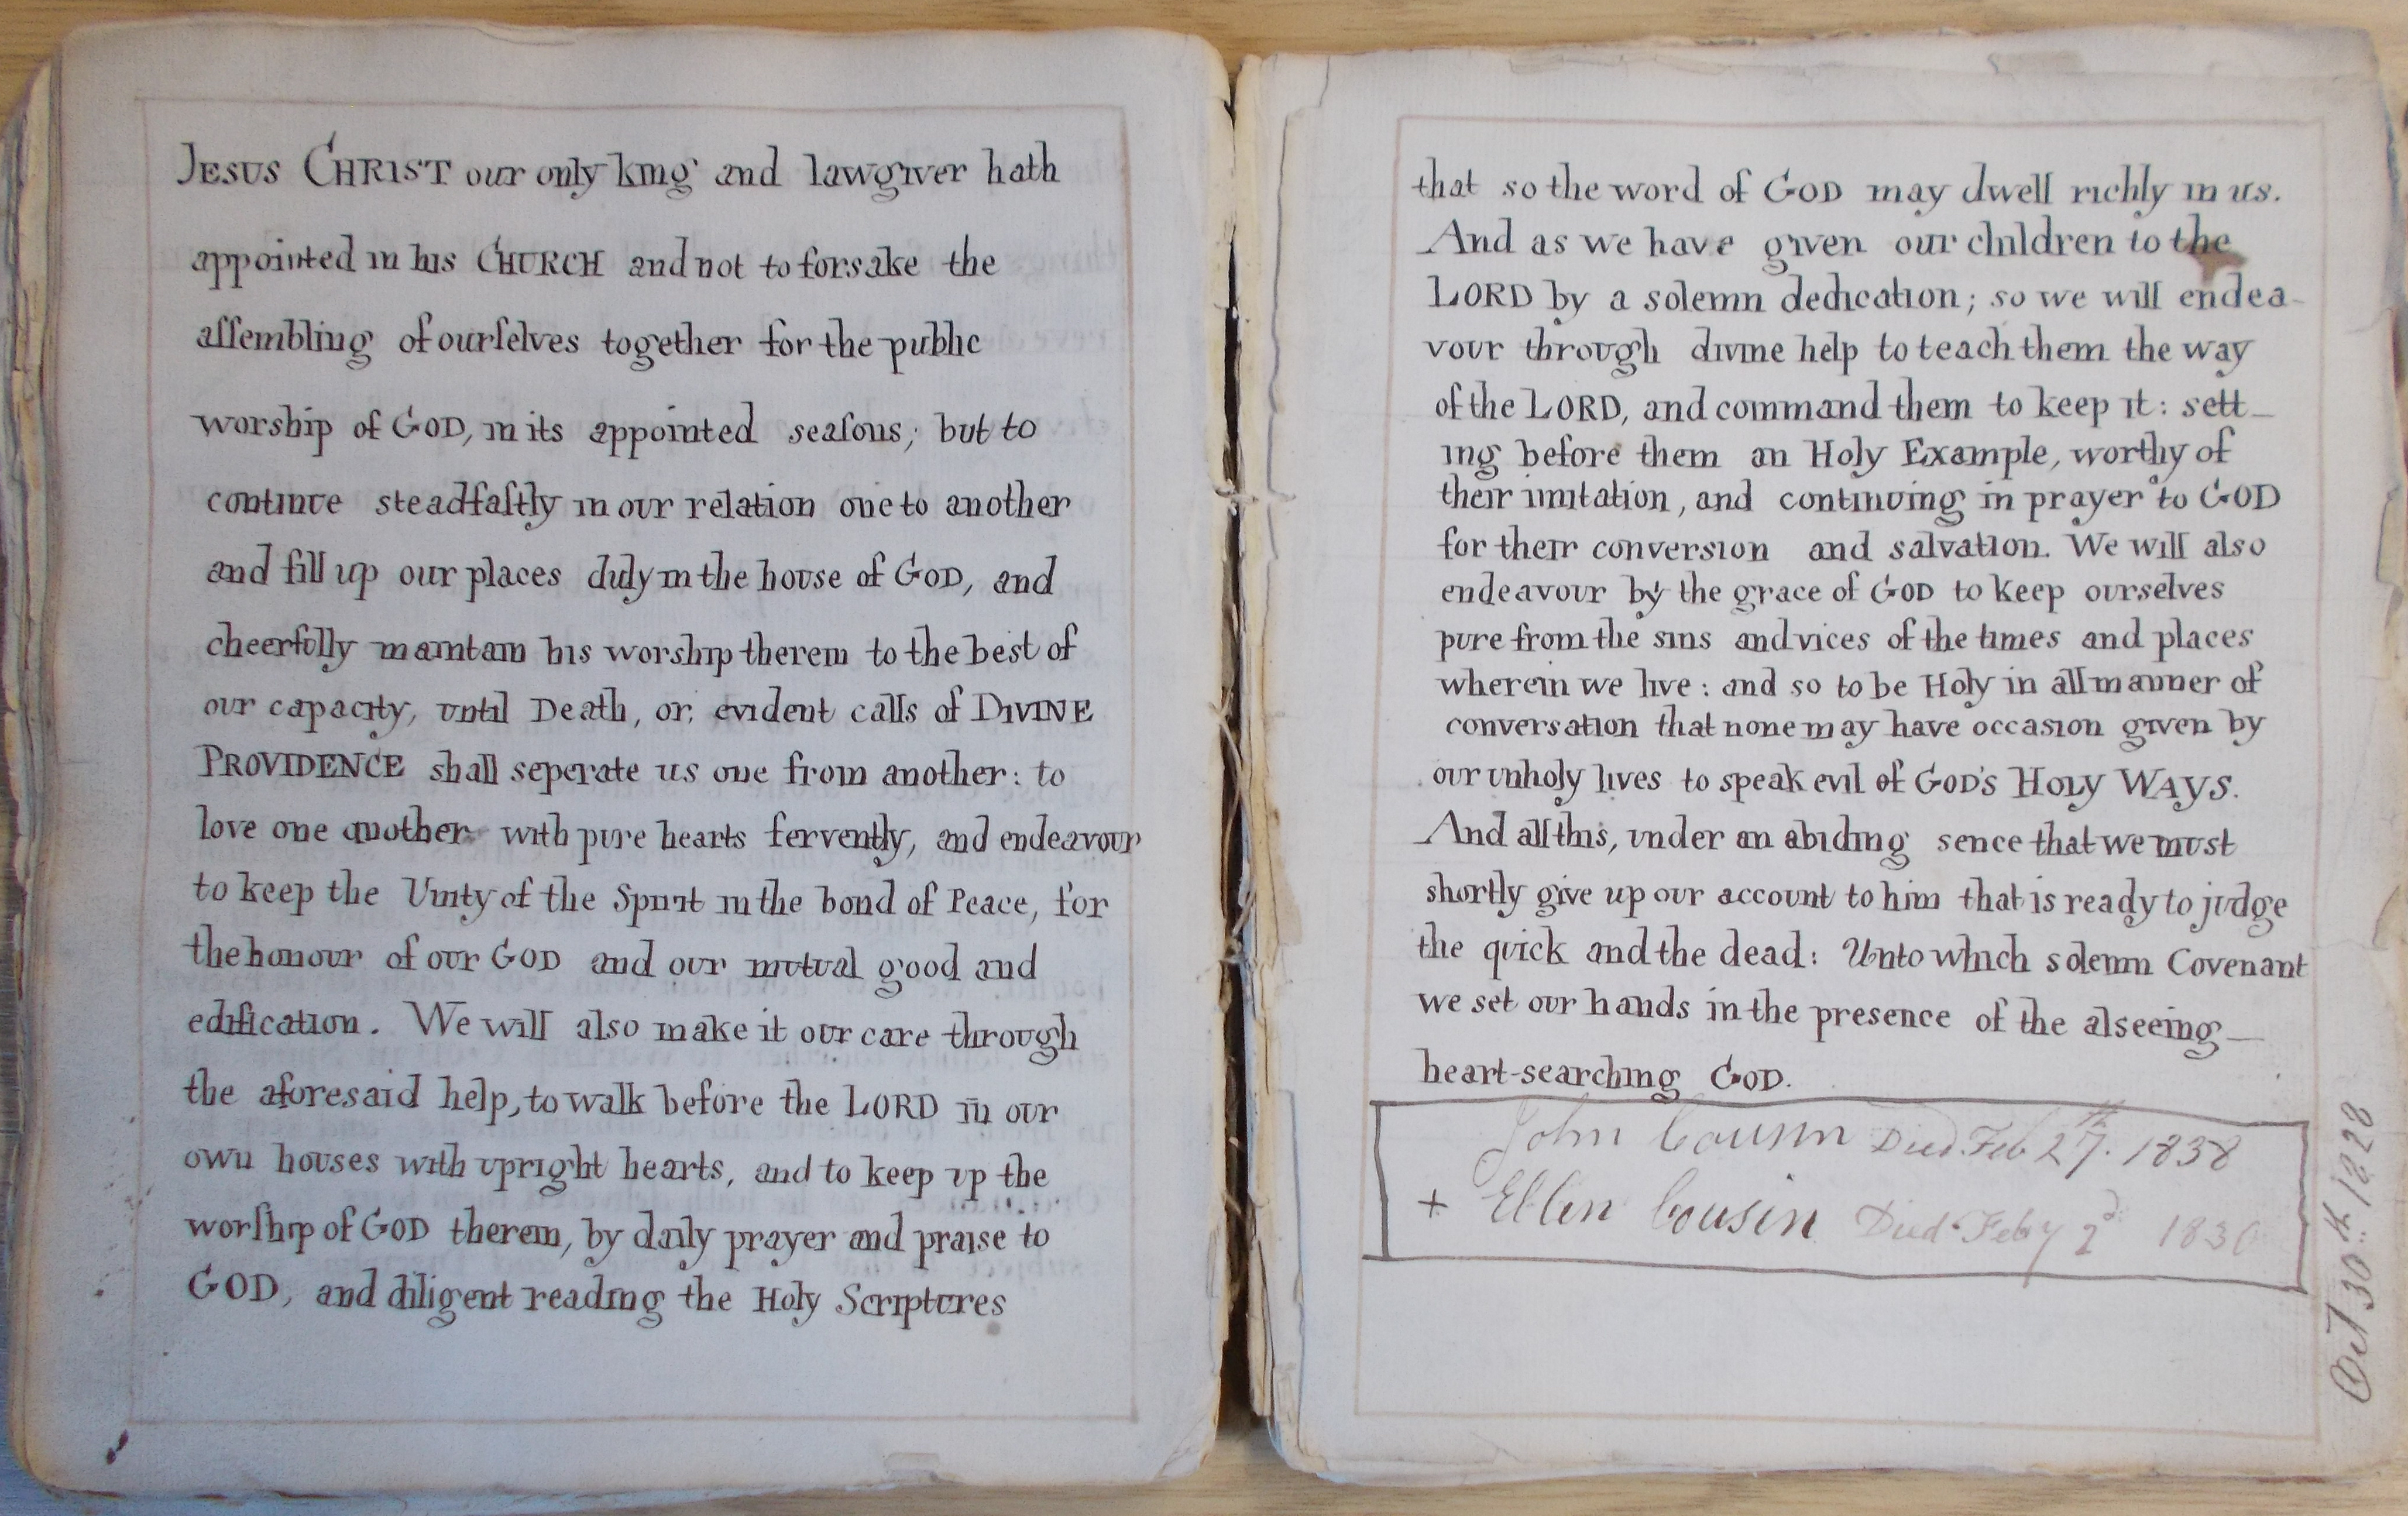 JESUS CHRIST our only king and lawgiver hath
appointed in his CHURCH and not to forsake the
aſſembling of ourſelves together for the public
worship of GOD, in its appointed seaſons; but to
continue steadfaſtly in our relation one to another
and fill up our places duly in the house of GOD, and
cheerfully maintain his worship therein to the best of
our capacity, until Death, or, evident calls of DIVINE
PROVIDENCE shall seperate us one from another: to
love one another with pure hearts fervently, and endeavour
to keep the Unity of the Spirit in the bond of Peace, for
the honour of our GOD and our mutual good and
edification. We will also make it our care through
the aforesaid help, to walk before the LORD in our
own houses with upright hearts, and to keep up the
worſhip of GOD therein, by daily prayer and praise to
GOD, and diligent reading the Holy Scriptures
that so the word of GOD may dwell richly in us.
And as we have given our children to the
LORD by a solemn dedication; so we will endea-
vour through divine help to teach them the way
of the LORD, and command them to keep it: sett-
ing before them an Holy Example, worthy of
their imitation, and continuing in prayer to GOD
for their conversion and salvation. We will also
endeavour by the grace of GOD to keep ourselves
pure from the sins and vices of the times and places
wherein we live: and so to be Holy in all manner of
conversation that none may have occasion given by
our unholy lives to speak evil of GOD'S HOLY WAYS.
And all this, under an abiding sence that we must
shortly give up our account to him that is ready to judge
the quick and the dead: Unto which solemn Covenant
we set our hands in the presence of the alseeing
heart-searching GOD.
John Cousin Died Feb 27th. 1838
+ Ellen Cousin Died Feby 2d 1830
Oct 30th 1828